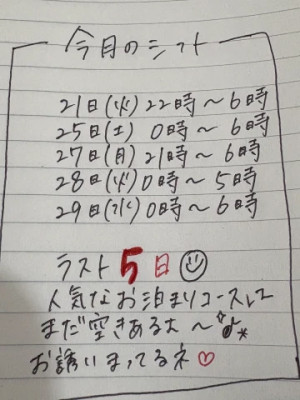 今月のシフト
21日(火) 22時〜6時
25日(土) 0時〜6時
27日(月) 21時〜6時
28日(火) 0時〜5時
29日(水) 0時〜6時
ラスト5日
人気なお泊まりコースも
まだ空きあるよ〜
お誘いまってるネ♡